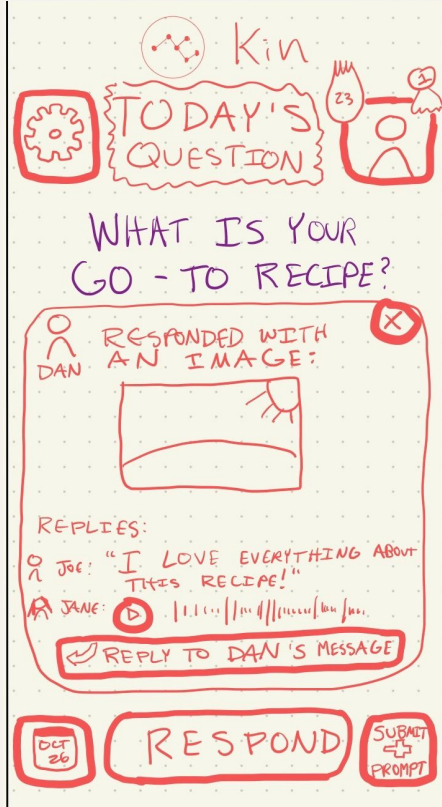 Kin
TODAY'S
QUESTION
23
1
WHAT IS YOUR
GO-TO RECIPE?
DAN
RESPONDED WITH
AN IMAGE:
X
REPLIES:
JOE: "I LOVE EVERYTHING ABOUT
THIS RECIPE!"
JANE:
REPLY TO DAN'S MESSAGE
OCT
26
RESPOND
SUBMIT
+
PROMPT